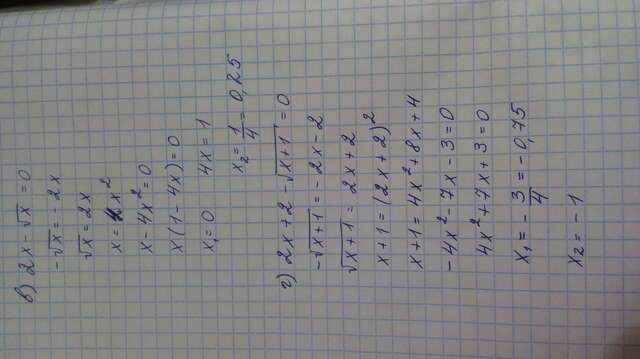 в) 2x - √x = 0
-√x = -2x
√x = 2x
x = 4x²
x - 4x² = 0
x(1 - 4x) = 0
x₁ = 0 4x = 1
x₂ = 1/4 = 0,25
г) 2x + 2 - √(x+1) = 0
-√(x+1) = -2x - 2
√(x+1) = 2x + 2
x + 1 = (2x + 2)²
x + 1 = 4x² + 8x + 4
-4x² - 7x - 3 = 0
4x² + 7x + 3 = 0
x₁ = -3/4 = -0,75
x₂ = -1